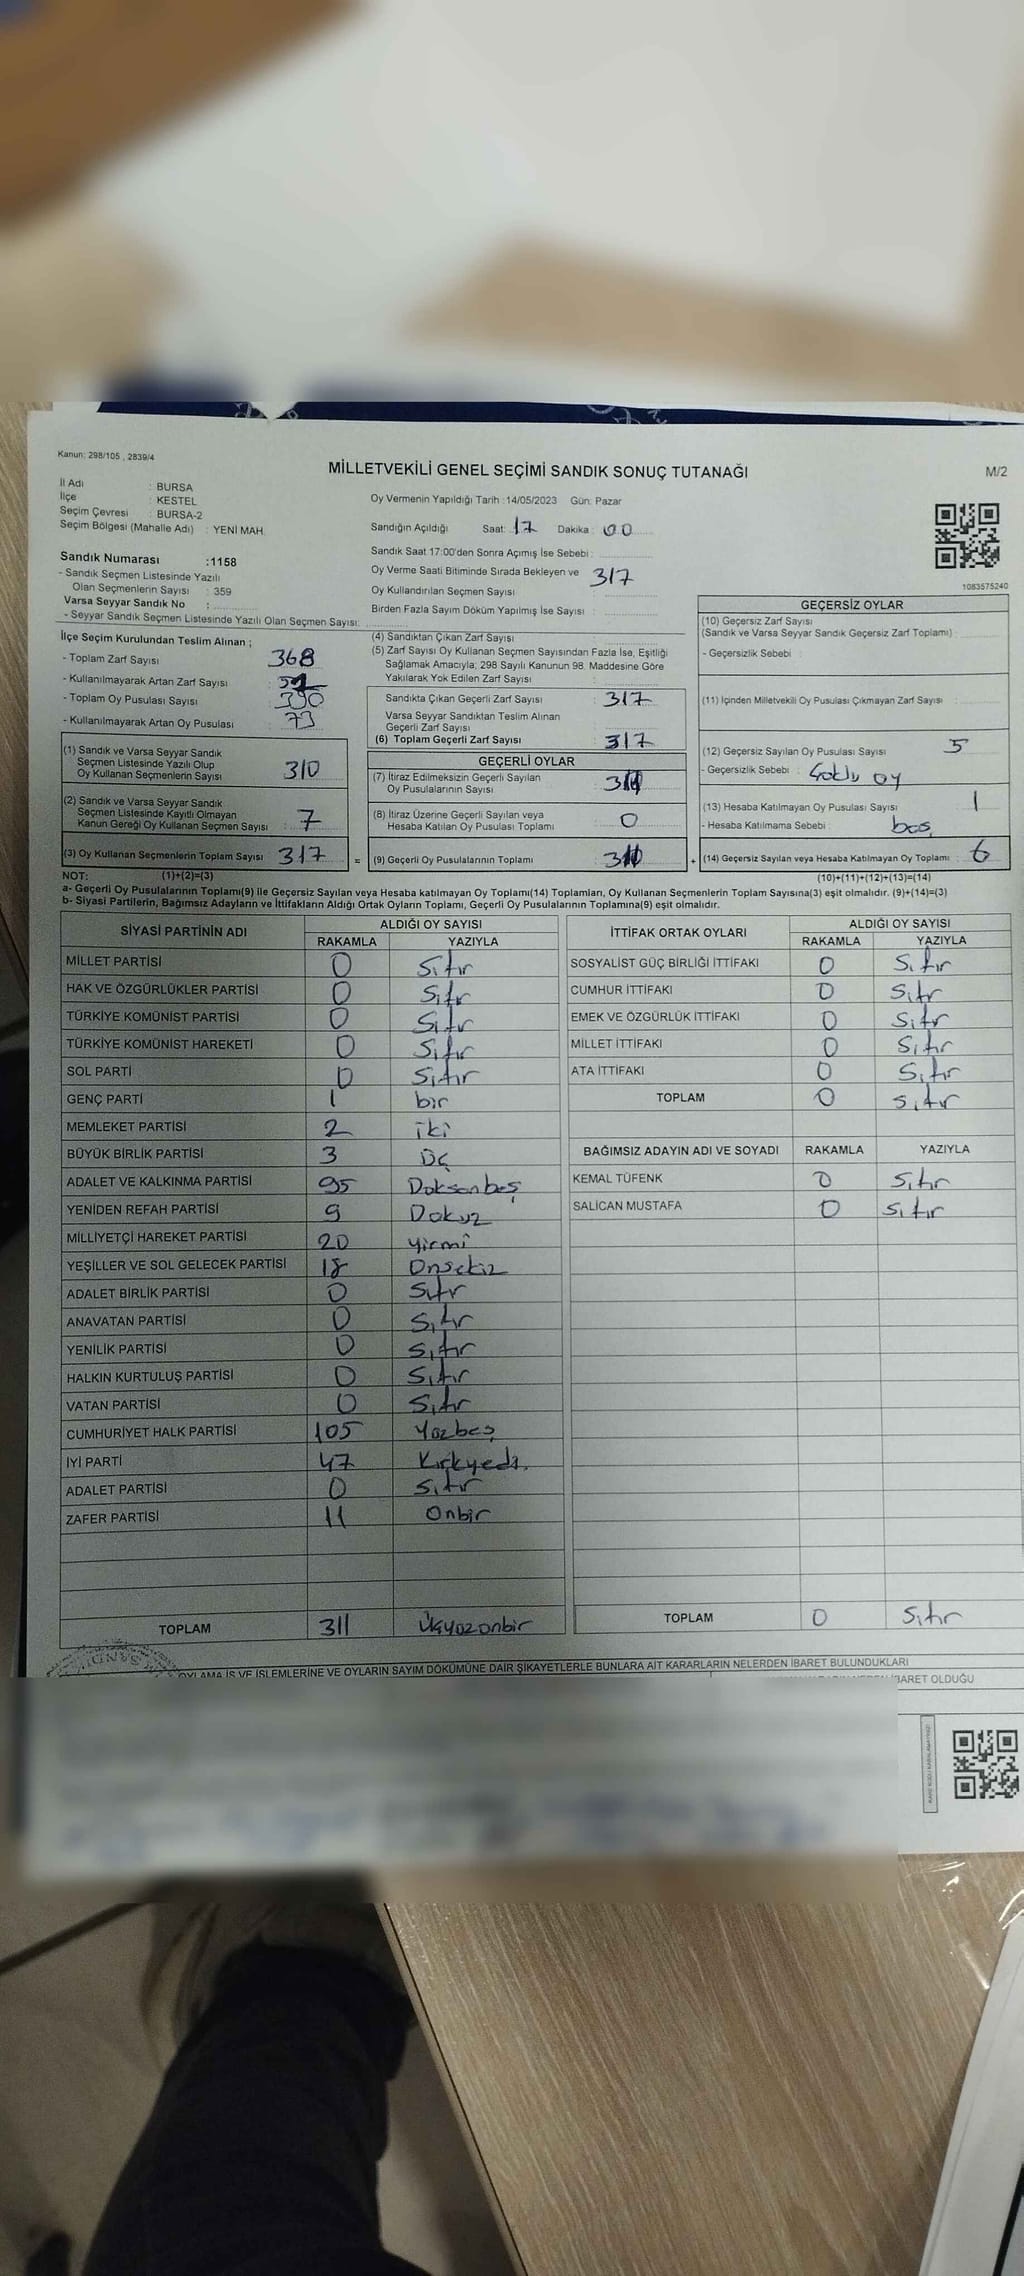 Kanun: 298/105 , 2839/4
MİLLETVEKİLİ GENEL SEÇİMİ SANDIK SONUÇ TUTANAĞI
M/2
İl Adı : BURSA
İlçe : KESTEL
Seçim Çevresi : BURSA-2
Seçim Bölgesi (Mahalle Adı) : YENİ MAH.
Oy Vermenin Yapıldığı Tarih :14/05/2023 Gün: Pazar
Sandığın Açıldığı Saat: 17 Dakika : 00
Sandık Saat 17:00'den Sonra Açımış İse Sebebi :
Oy Verme Saati Bitiminde Sırada Bekleyen ve
Oy Kullandırılan Seçmen Sayısı : 317
Birden Fazla Sayım Döküm Yapılmış İse Sayısı :
1083575240
Sandık Numarası :1158
- Sandık Seçmen Listesinde Yazılı
Olan Seçmenlerin Sayısı : 359
Varsa Seyyar Sandık No :
- Seyyar Sandık Seçmen Listesinde Yazılı Olan Seçmen Sayısı:
İlçe Seçim Kurulundan Teslim Alınan ;
- Toplam Zarf Sayısı : 368
- Kullanılmayarak Artan Zarf Sayısı :
- Toplam Oy Pusulası Sayısı : 390
- Kullanılmayarak Artan Oy Pusulası : 73
(1) Sandık ve Varsa Seyyar Sandık
Seçmen Listesinde Yazılı Olup
Oy Kullanan Seçmenlerin Sayısı : 310
(2) Sandık ve Varsa Seyyar Sandık
Seçmen Listesinde Kayıtlı Olmayan
Kanun Gereği Oy Kullanan Seçmen Sayısı : 7
(3) Oy Kullanan Seçmenlerin Toplam Sayısı : 317
(1)+(2)=(3)
(4) Sandıktan Çıkan Zarf Sayısı :
(5) Zarf Sayısı Oy Kullanan Seçmen Sayısından Fazla İse, Eşitliği
Sağlamak Amacıyla; 298 Sayılı Kanunun 98. Maddesine Göre
Yakılarak Yok Edilen Zarf Sayısı :
Sandıkta Çıkan Geçerli Zarf Sayısı : 317
Varsa Seyyar Sandıktan Teslim Alınan
Geçerli Zarf Sayısı :
(6) Toplam Geçerli Zarf Sayısı : 317
GEÇERLİ OYLAR
(7) İtiraz Edilmeksizin Geçerli Sayılan
Oy Pusulalarının Sayısı :
(8) İtiraz Üzerine Geçerli Sayılan veya
Hesaba Katılan Oy Pusulası Toplamı : 0
= (9) Geçerli Oy Pusulalarının Toplamı :
GEÇERSİZ OYLAR
(10) Geçersiz Zarf Sayısı
(Sandık ve Varsa Seyyar Sandık Geçersiz Zarf Toplamı) :
- Geçersizlik Sebebi :
(11) İçinden Milletvekili Oy Pusulası Çıkmayan Zarf Sayısı :
(12) Geçersiz Sayılan Oy Pusulası Sayısı : 5
- Geçersizlik Sebebi : Çoklu oy
(13) Hesaba Katılmayan Oy Pusulası Sayısı : 1
- Hesaba Katılmama Sebebi : boş
+ (14) Geçersiz Sayılan veya Hesaba Katılmayan Oy Toplamı : 6
(10)+(11)+(12)+(13)=(14)
NOT:
a- Geçerli Oy Pusulalarının Toplamı(9) ile Geçersiz Sayılan veya Hesaba katılmayan Oy Toplamı(14) Toplamları, Oy Kullanan Seçmenlerin Toplam Sayısına(3) eşit olmalıdır. (9)+(14)=(3)
b- Siyasi Partilerin, Bağımsız Adayların ve İttifakların Aldığı Ortak Oyların Toplamı, Geçerli Oy Pusulalarının Toplamına(9) eşit olmalıdır.
SİYASİ PARTİNİN ADI ALDIĞI OY SAYISI
RAKAMLA YAZIYLA
MİLLET PARTİSİ 0 Sıfır
HAK VE ÖZGÜRLÜKLER PARTİSİ 0 Sıfır
TÜRKİYE KOMÜNİST PARTİSİ 0 Sıfır
TÜRKİYE KOMÜNİST HAREKETİ 0 Sıfır
SOL PARTİ 0 Sıfır
GENÇ PARTİ 1 bir
MEMLEKET PARTİSİ 2 iki
BÜYÜK BİRLİK PARTİSİ 3 Üç
ADALET VE KALKINMA PARTİSİ 95 Doksanbeş
YENİDEN REFAH PARTİSİ 9 Dokuz
MİLLİYETÇİ HAREKET PARTİSİ 20 yirmi
YEŞİLLER VE SOL GELECEK PARTİSİ 18 Onsekiz
ADALET BİRLİK PARTİSİ 0 Sıfır
ANAVATAN PARTİSİ 0 Sıfır
YENİLİK PARTİSİ 0 Sıfır
HALKIN KURTULUŞ PARTİSİ 0 Sıfır
VATAN PARTİSİ 0 Sıfır
CUMHURİYET HALK PARTİSİ 105 Yüzbeş
İYİ PARTİ 47 Kırkyedi.
ADALET PARTİSİ 0 Sıfır
ZAFER PARTİSİ 11 Onbir
TOPLAM 311 Üçyüzonbir
İTTİFAK ORTAK OYLARI ALDIĞI OY SAYISI
RAKAMLA YAZIYLA
SOSYALİST GÜÇ BİRLİĞİ İTTİFAKI 0 Sıfır
CUMHUR İTTİFAKI 0 Sıfır
EMEK VE ÖZGÜRLÜK İTTİFAKI 0 Sıfır
MİLLET İTTİFAKI 0 Sıfır
ATA İTTİFAKI 0 Sıfır
TOPLAM 0 Sıfır
BAĞIMSIZ ADAYIN ADI VE SOYADI RAKAMLA YAZIYLA
KEMAL TÜFENK 0 Sıfır
SALİCAN MUSTAFA 0 Sıfır
TOPLAM 0 Sıfır
OYLAMA İŞ VE İŞLEMLERİNE VE OYLARIN SAYIM DÖKÜMÜNE DAİR ŞİKAYETLERLE BUNLARA AİT KARARLARIN NELERDEN İBARET BULUNDUKLARI
İBARET OLDUĞU